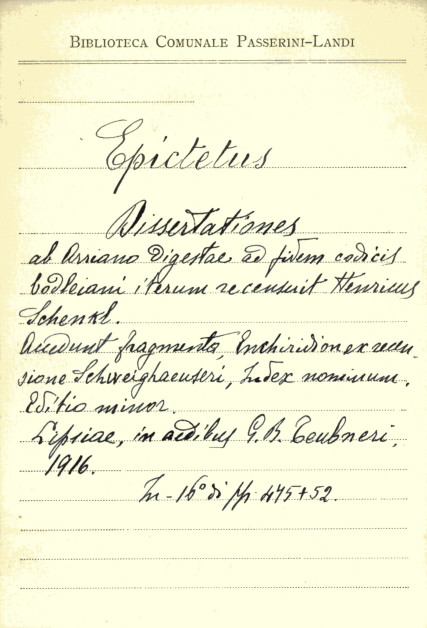 BIBLIOTECA COMUNALE PASSERINI-LANDI
Epictetus
Dissertationes
ab Arriano Digestae ad fidem codicis
bodleiani iterum recensuit Henricus
Schenkl.
Accedunt fragmenta, Enchiridion ex recen-
sione Schweighaeuseri, Index nominum.
Editio minor.
Lipsiae, in aedibus G. B. Teubneri,
1916.
In-16° di pp 475+52.